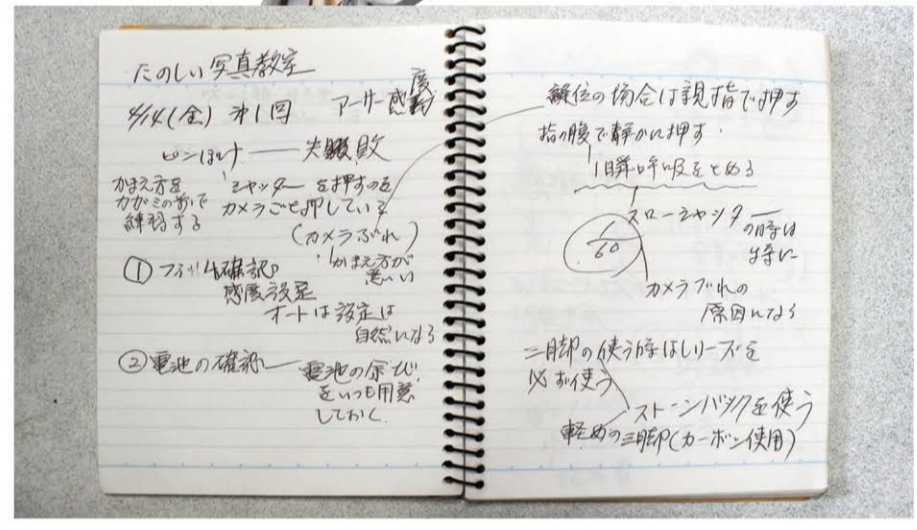 たのしい写真教室
4/14(金) 第1回 アーサー感度
ピンぼけ ── 失敗
シャッターを押すのを
カメラごと押している
(カメラぶれ)
かまえ方が
悪い
かまえ方を
カガミの前で
練習する
① フィルム確認。
感度設定
オートは設定は
自然になる
② 電池の確認 ─ 電池の予び
をいつも用意
しておく
縦位の場合は親指で押す
指の腹で静かに押す.
1瞬呼吸をとめる
スローシャッターの時は
特に
1/60
カメラブレの
原因になる
三脚の使う時はレリーズを
必ず使う
ストーンバックを使う
軽めの三脚(カーボン使用)